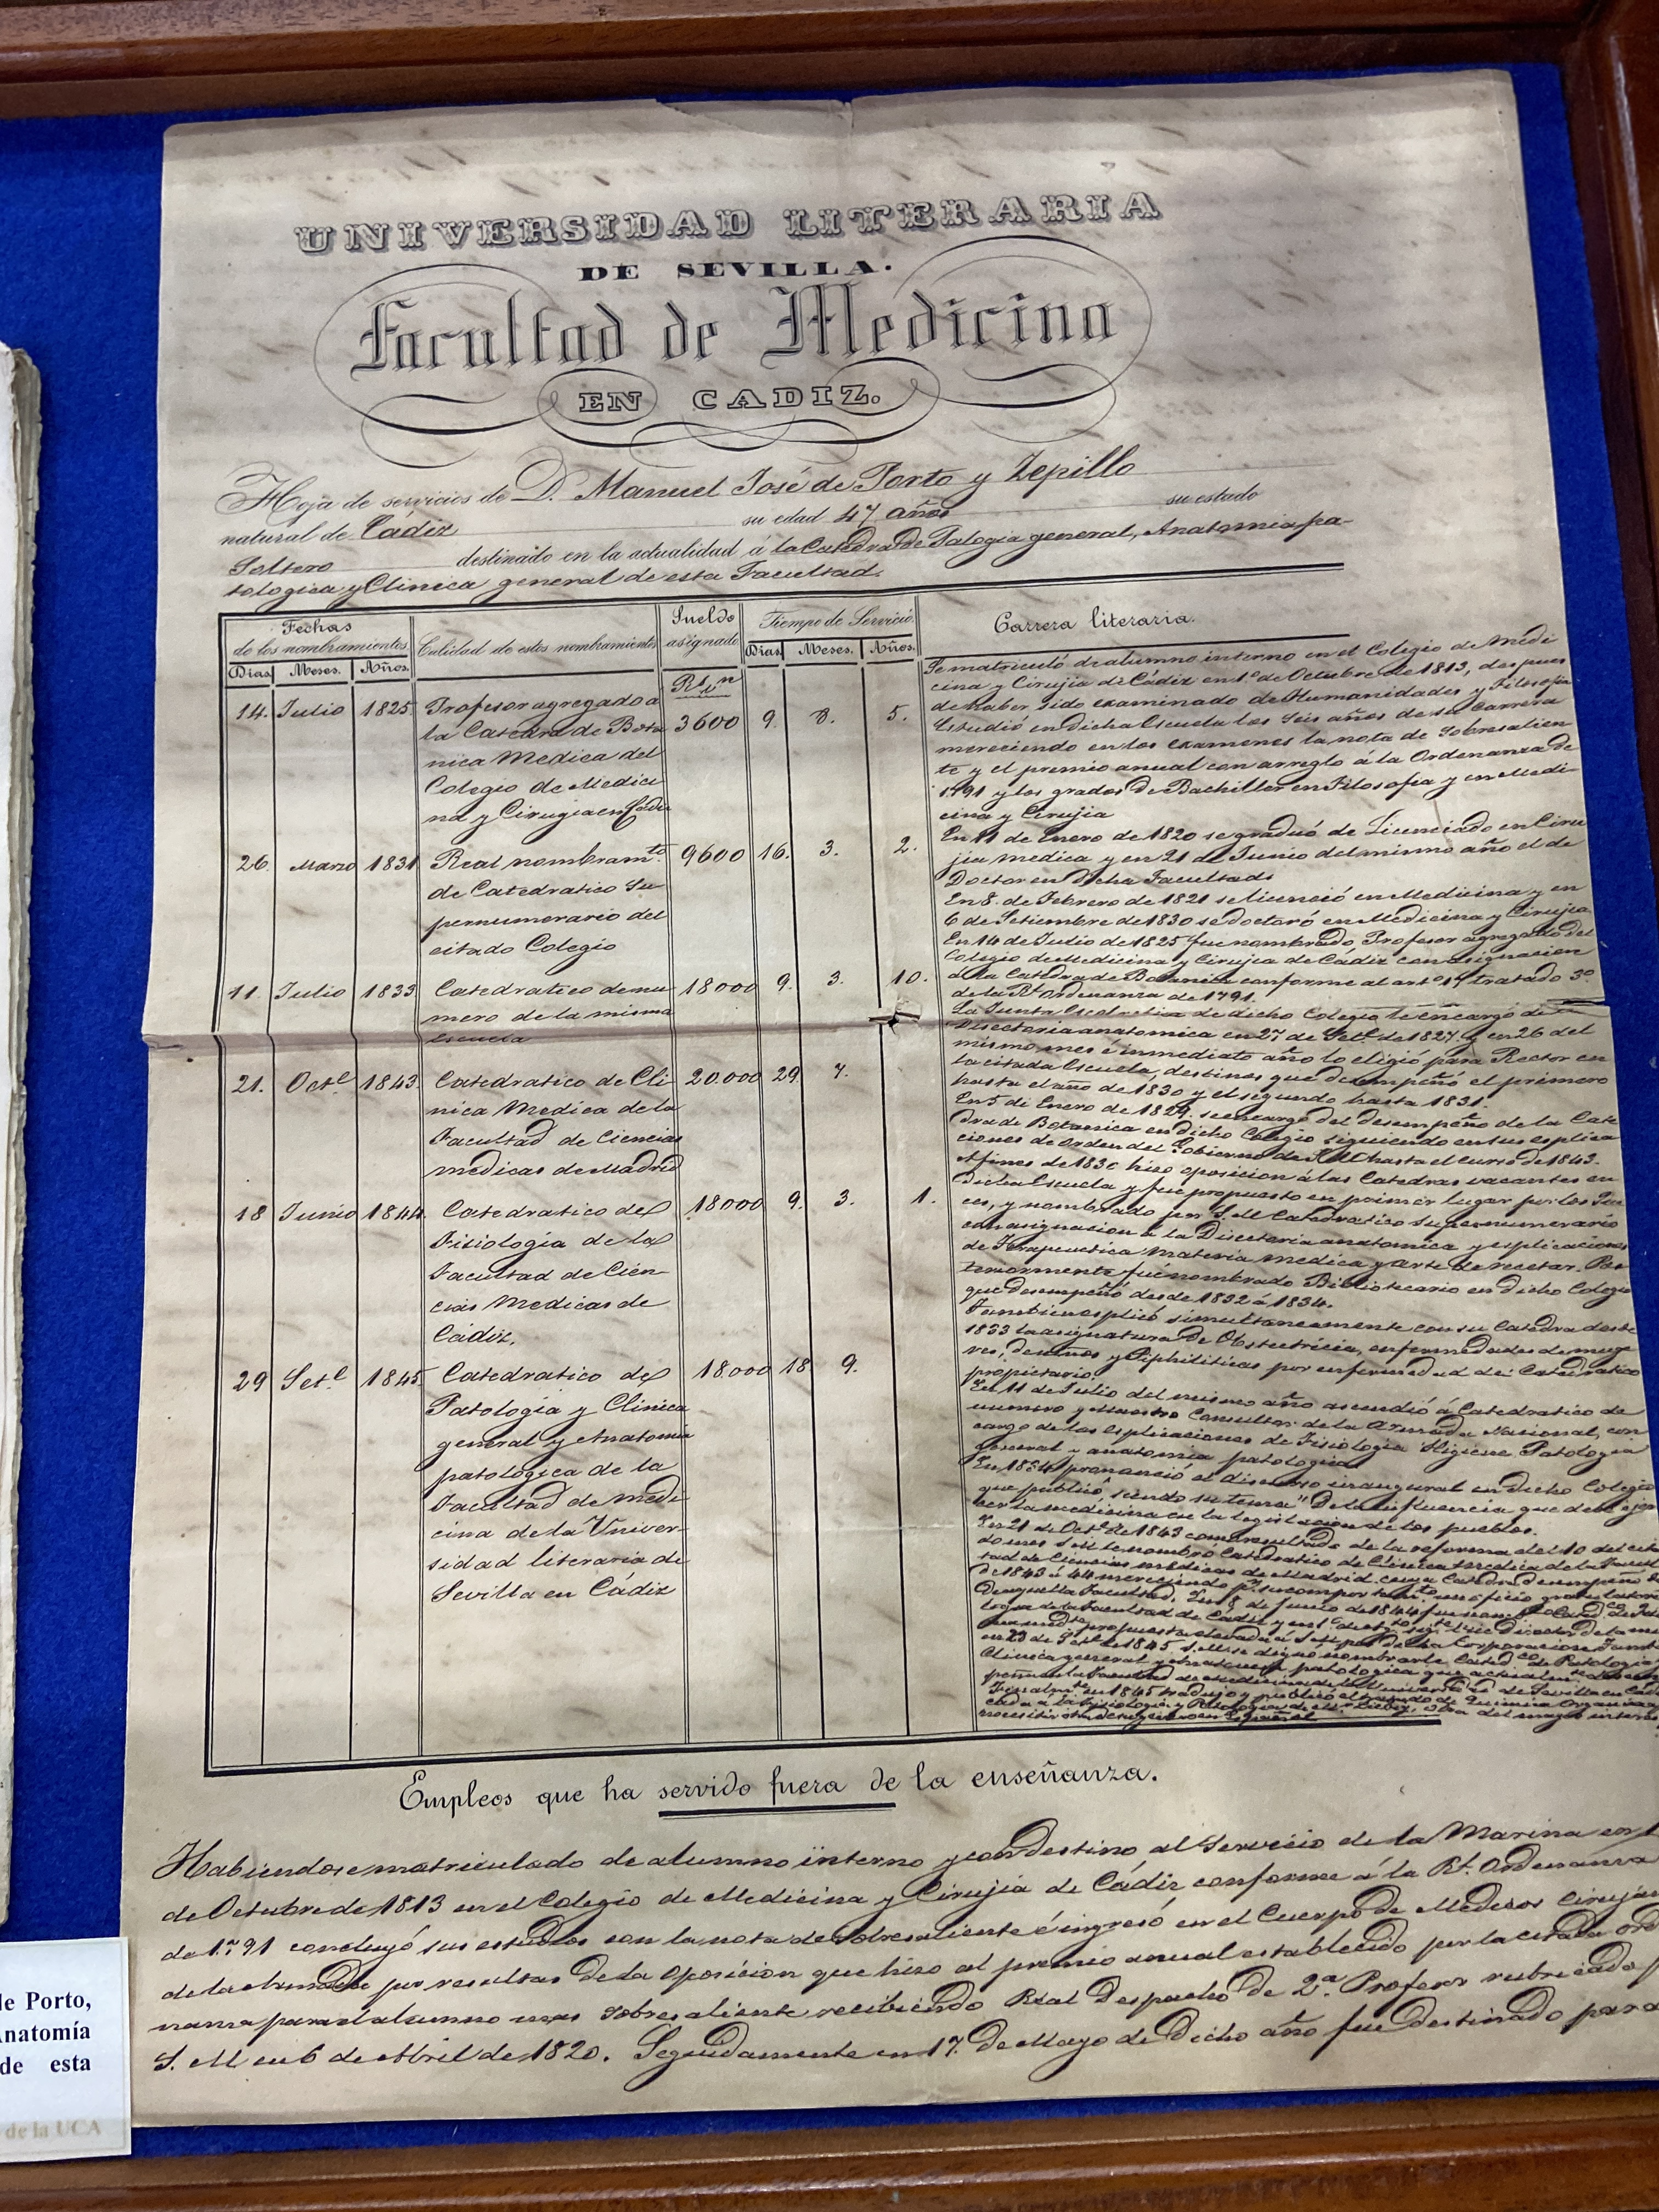 UNIVERSIDAD LITERARIA
DE SEVILLA.
Facultad de Medicina
EN CADIZ.
Hoja de servicios de D. Manuel José de Porto y Zepillo
natural de Cádiz su edad 47 años su estado
Soltero destinado en la actualidad á la Catedra de Patologia general, Anatomia pa-
tologica y Clinica general de esta Facultad.
Fechas
de los nombramientos.
Dias Meses. Años.
Calidad de estos nombramientos
Sueldo
asignado
Tiempo de Servicio.
Dias Meses. Años.
Carrera literaria.
Rs. vn
14. Julio 1825 Profesor agregado a 3600 9. 8. 5.
la Catedra de Bota
nica Medica del
Colegio de Medici
na y Cirugia en Cadiz
26. Marzo 1831 Real nombramto. 9600 16. 3. 2.
de Catedratico Su
pernumerario del
citado Colegio
11. Julio 1833 Catedratico de nu 18000 9. 3. 10.
mero de la misma
Escuela
21. Octe. 1843 Catedratico de Cli 20.000 29. 7.
nica Medica de la
Facultad de Ciencias
medicas de Madrid
18 Junio 1844. Catedratico de 18000 9. 3. 1.
Fisiologia de la
Facultad de Cien
cias Medicas de
Cádiz.
29 Sete. 1845 Catedratico de 18.000 18 9.
Patologia y Clinica
general y Anatomia
patologica de la
Facultad de Medi
cina de la Univer-
sidad literaria de
Sevilla en Cádiz
Se matriculó de alumno interno en el Colegio de Medi
cina y Cirujia de Cádiz en 1º de Octubre de 1813, despues
de haber sido examinado de Humanidades y Filosofia
Estudió en dicha Escuela los seis años de su carrera
mereciendo en los examenes la nota de Sobresalien
te y el premio anual con arreglo á la Ordenanza de
1791 y los grados de Bachiller en Filosofia y en Medi
cina y Cirujia
En 11 de Enero de 1820 se graduó de Licenciado en Ciru
jia medica y en 21 de Junio del mismo año el de
Doctor en dicha Facultad
En 8. de Febrero de 1821 se licenció en Medicina y en
6 de Setiembre de 1830 se doctoró en Medicina y Cirujia
En 14 de Julio de 1825 fue nombrado Profesor agregado del
Colegio de Medicina y Cirujia de Cádiz con asignacion
á la Catedra de Botanica conforme al arto 14 tratado 3º
de la Rl. Ordenanza de 1791.
La Junta Escolastica de dicho Colegio le encargó de
Disectoria anatomica en 27 de Sete. de 1827. y en 26 del
mismo mes é inmediato año lo eligió para Rector en
la citada Escuela, destinos que desempeñó el primero
hasta el año de 1830 y el segundo hasta 1831.
En 5 de Enero de 1829. se encargó del desempeño de la Cate
dra de Botanica en dicho Colegio siguiendo en sus esplica
ciones de orden del Gobierno de S. M. hasta el curso de 1843.
A fines de 1830 hizo oposicion á las Catedras vacantes en
dicha Escuela y fue propuesto en primer lugar por los Jue
ces, y nombrado por S. M. Catedratico Supernumerario
con asignacion á la Disectoria anatomica y esplicaciones
de Terapeutica Materia medica y arte de recetar. Pos
teriormente fué nombrado Bibliotecario en dicho Colegio
que desempeñó desde 1832 á 1834.
Tambien esplicó simultaneamente con su Catedra desde
1833 la asignatura de Obstetricia, enfermedades de muge
res, de niños y Siphiliticas por enfermedad del Catedratico
propietario.
En 11 de Julio del mismo año ascendió á Catedratico de
numero y Maestro Consultor de la Armada Nacional, con
cargo de las esplicaciones de Fisiologia Higiene Patologia
general y anatomia patologica
En 1834 pronunció el discurso inaugural en dicho Colegio
que publicó, siendo su tema "De la influencia que debe ejer
cer la medicina en la legislacion de los pueblos.
En 21 de Octe. de 1843 como resultado de la reforma del 10 del cita
do mes S. M. le nombró Catedratico de Clinica medica de la Facul
tad de Ciencias medicas de Madrid cuya Catedra desempeñó
de 1843 á 44
Empleos que ha servido fuera de la enseñanza.
Habiendose matriculado de alumno interno y con destino al Servicio de la Marina en 1
de Octubre de 1813 en el Colegio de Medicina y Cirujia de Cádiz conforme á la Rl. Ordenanza
de 1791 concluyó sus estudios con la nota de Sobresaliente é ingresó en el Cuerpo de Medicos Cirujan
de la Armada por resultas de la oposicion que hizo al premio anual establecido por la citada ord
nanza para el alumno mas sobresaliente recibiendo Real Despacho de 2º. Profesor rubricado p
S. M en 6 de Abril de 1820. Seguidamente en 17. de Mayo de dicho año fue destinado para
de Porto,
Anatomía
de esta
de la UCA